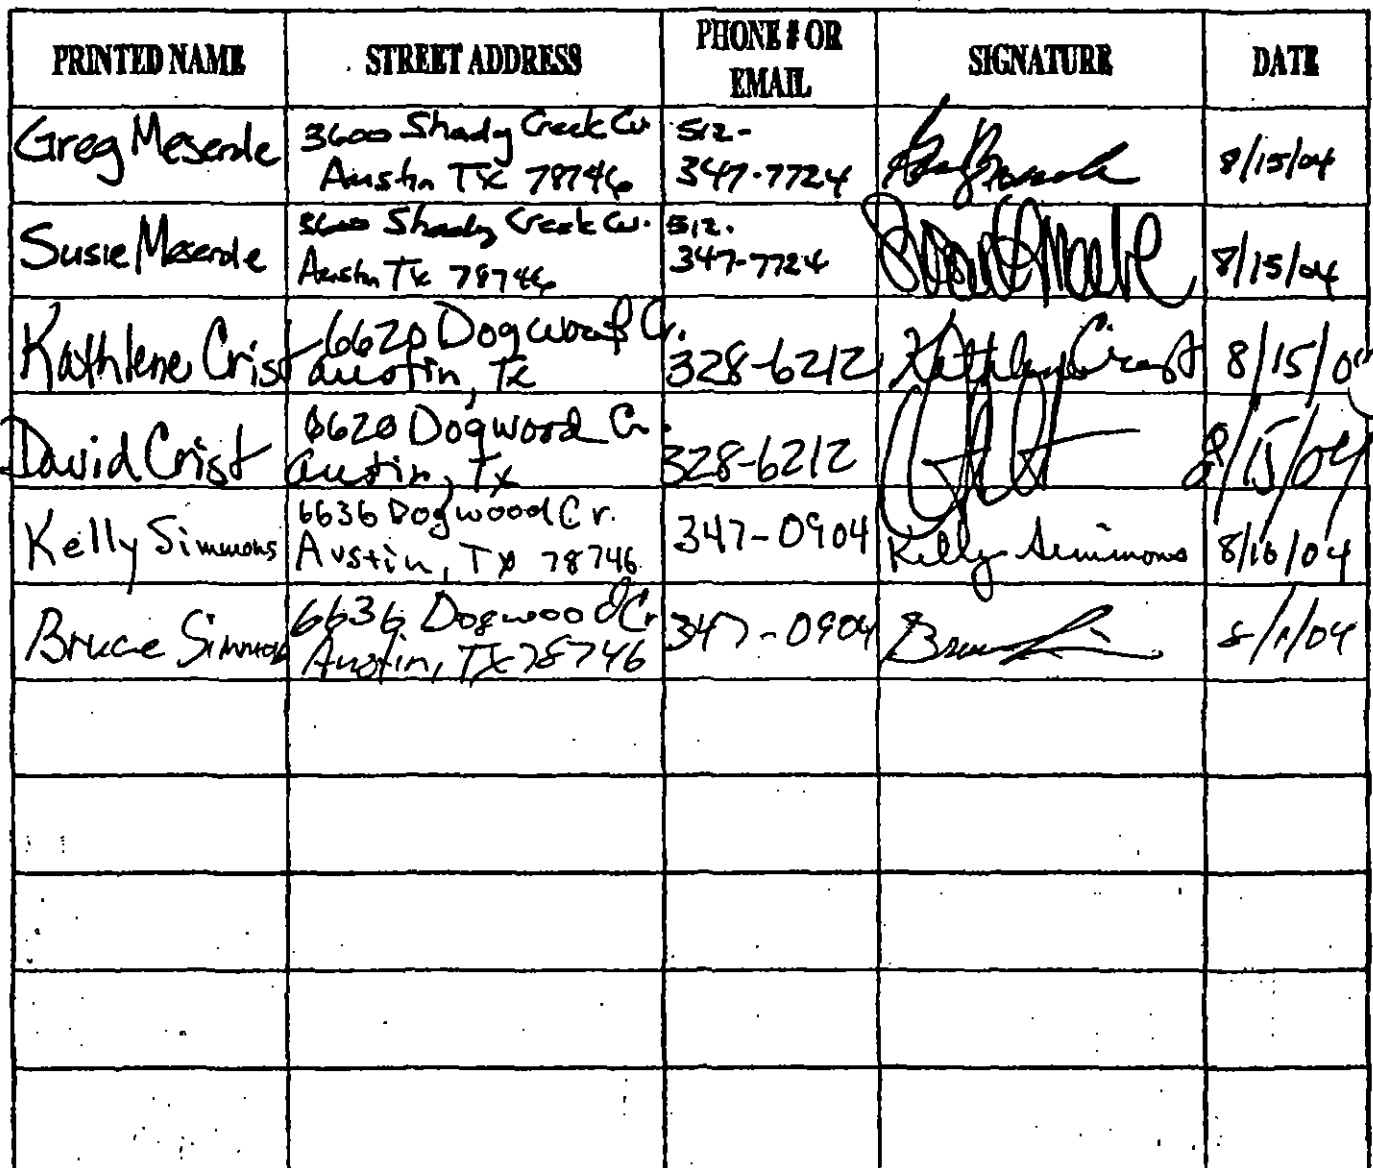 PRINTED NAME STREET ADDRESS PHONE # OR EMAIL SIGNATURE DATE
Greg Meserole 3600 Shady Creek Cv. 512-
Austin TX 78746 347-7724 8/15/04
Susie Meserole 3600 Shady Creek Cv. 512-
Austin TX 78746 347-7724 8/15/04
Kathlene Crist 6620 Dogwood Cr.
Austin, Tx 328-6212 Kathlene Crist 8/15/04
David Crist 6620 Dogwood Cr.
Austin, Tx 328-6212 8/15/04
Kelly Simmons 6636 Dogwood Cr.
Austin, TX 78746 347-0904 Kelly Simmons 8/16/04
Bruce Simmons 6636 Dogwood Cr
Austin, TX 78746 347-0904